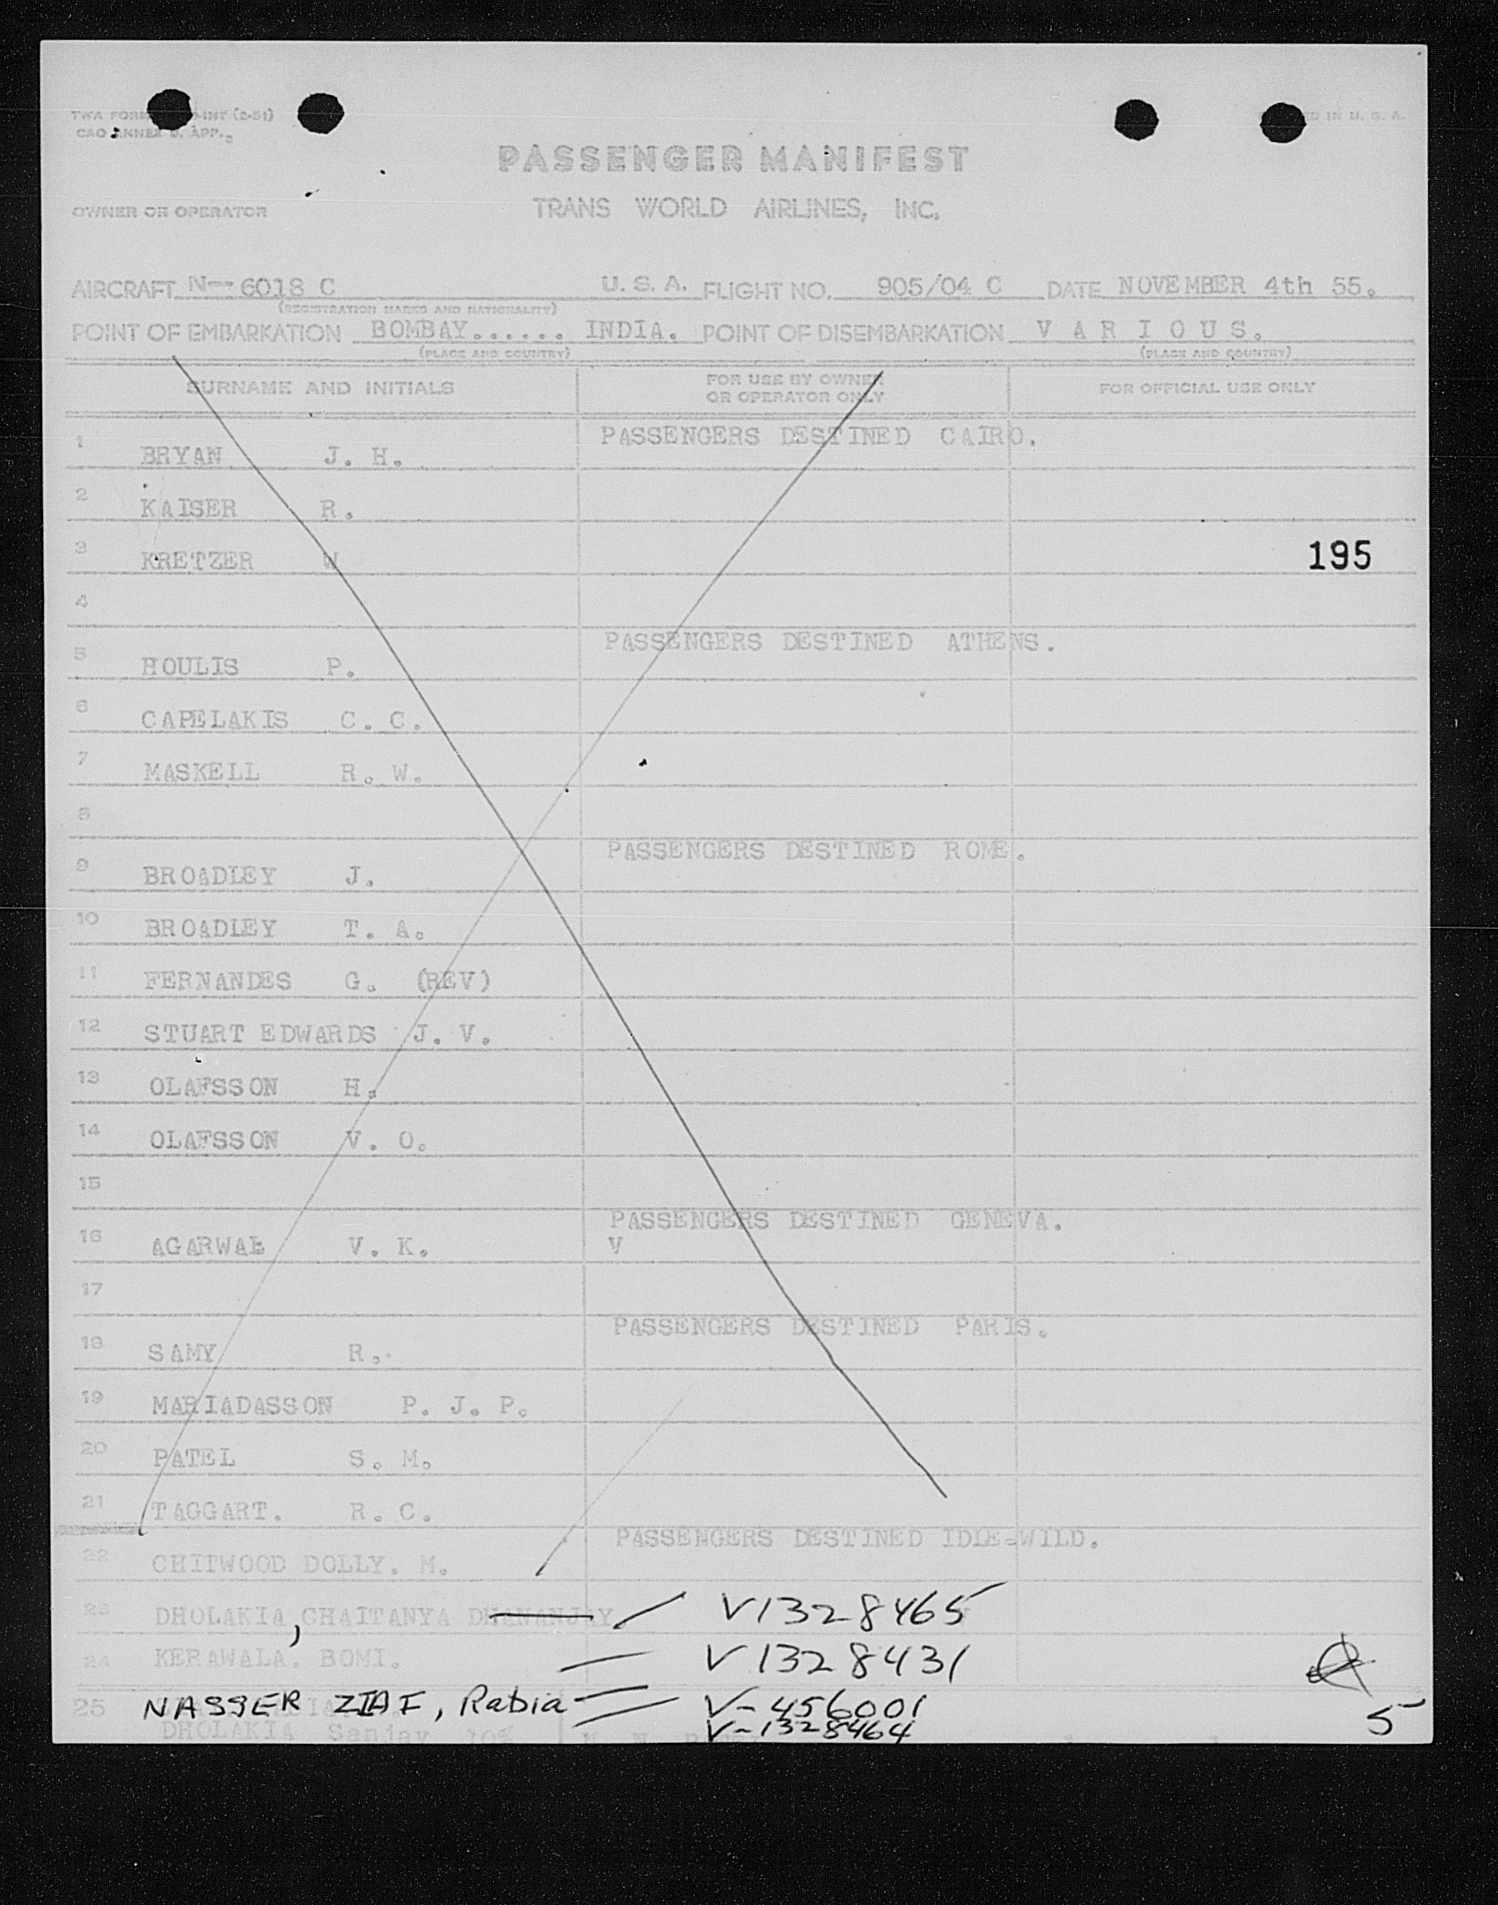 TWA FORM INT (2-51)
CAO ANNEX 9. APP.
IN U. S. A.
PASSENGER MANIFEST
OWNER OR OPERATOR TRANS WORLD AIRLINES, INC.
AIRCRAFT N-- 6018 C U. S. A. FLIGHT NO. 905/04 C DATE NOVEMBER 4th 55.
(REGISTRATION MARKS AND NATIONALITY)
POINT OF EMBARKATION BOMBAY...... INDIA. POINT OF DISEMBARKATION V A R I O U S.
(PLACE AND COUNTRY) (PLACE AND COUNTRY)
SURNAME AND INITIALS FOR USE BY OWNER OR OPERATOR ONLY FOR OFFICIAL USE ONLY
PASSENGERS DESTINED CAIRO.
1 BRYAN J. H.
2 KAISER R.
3 KRETZER W 195
4
PASSENGERS DESTINED ATHENS.
5 HOULIS P.
6 CAPELAKIS C. C.
7 MASKELL R. W.
8
PASSENGERS DESTINED ROME.
9 BROADLEY J.
10 BROADLEY T. A.
11 FERNANDES G. (REV)
12 STUART EDWARDS J. V.
13 OLAFSSON H.
14 OLAFSSON V. O.
15
PASSENGERS DESTINED GENEVA.
16 AGARWAL V. K. V
17
PASSENGERS DESTINED PARIS.
18 SAMY R.
19 MARIADASSON P. J. P.
20 PATEL S. M.
21 TAGGART. R. C.
PASSENGERS DESTINED IDLE-WILD.
22 CHITWOOD DOLLY. M.
23 DHOLAKIA, CHAITANYA DHANANJAY V1328465
24 KERAWALA. BOMI. V1328431
25 NASSER ZIAI, Rabia V-456001
DHOLAKIA Sanjay 10% V-1328464
5